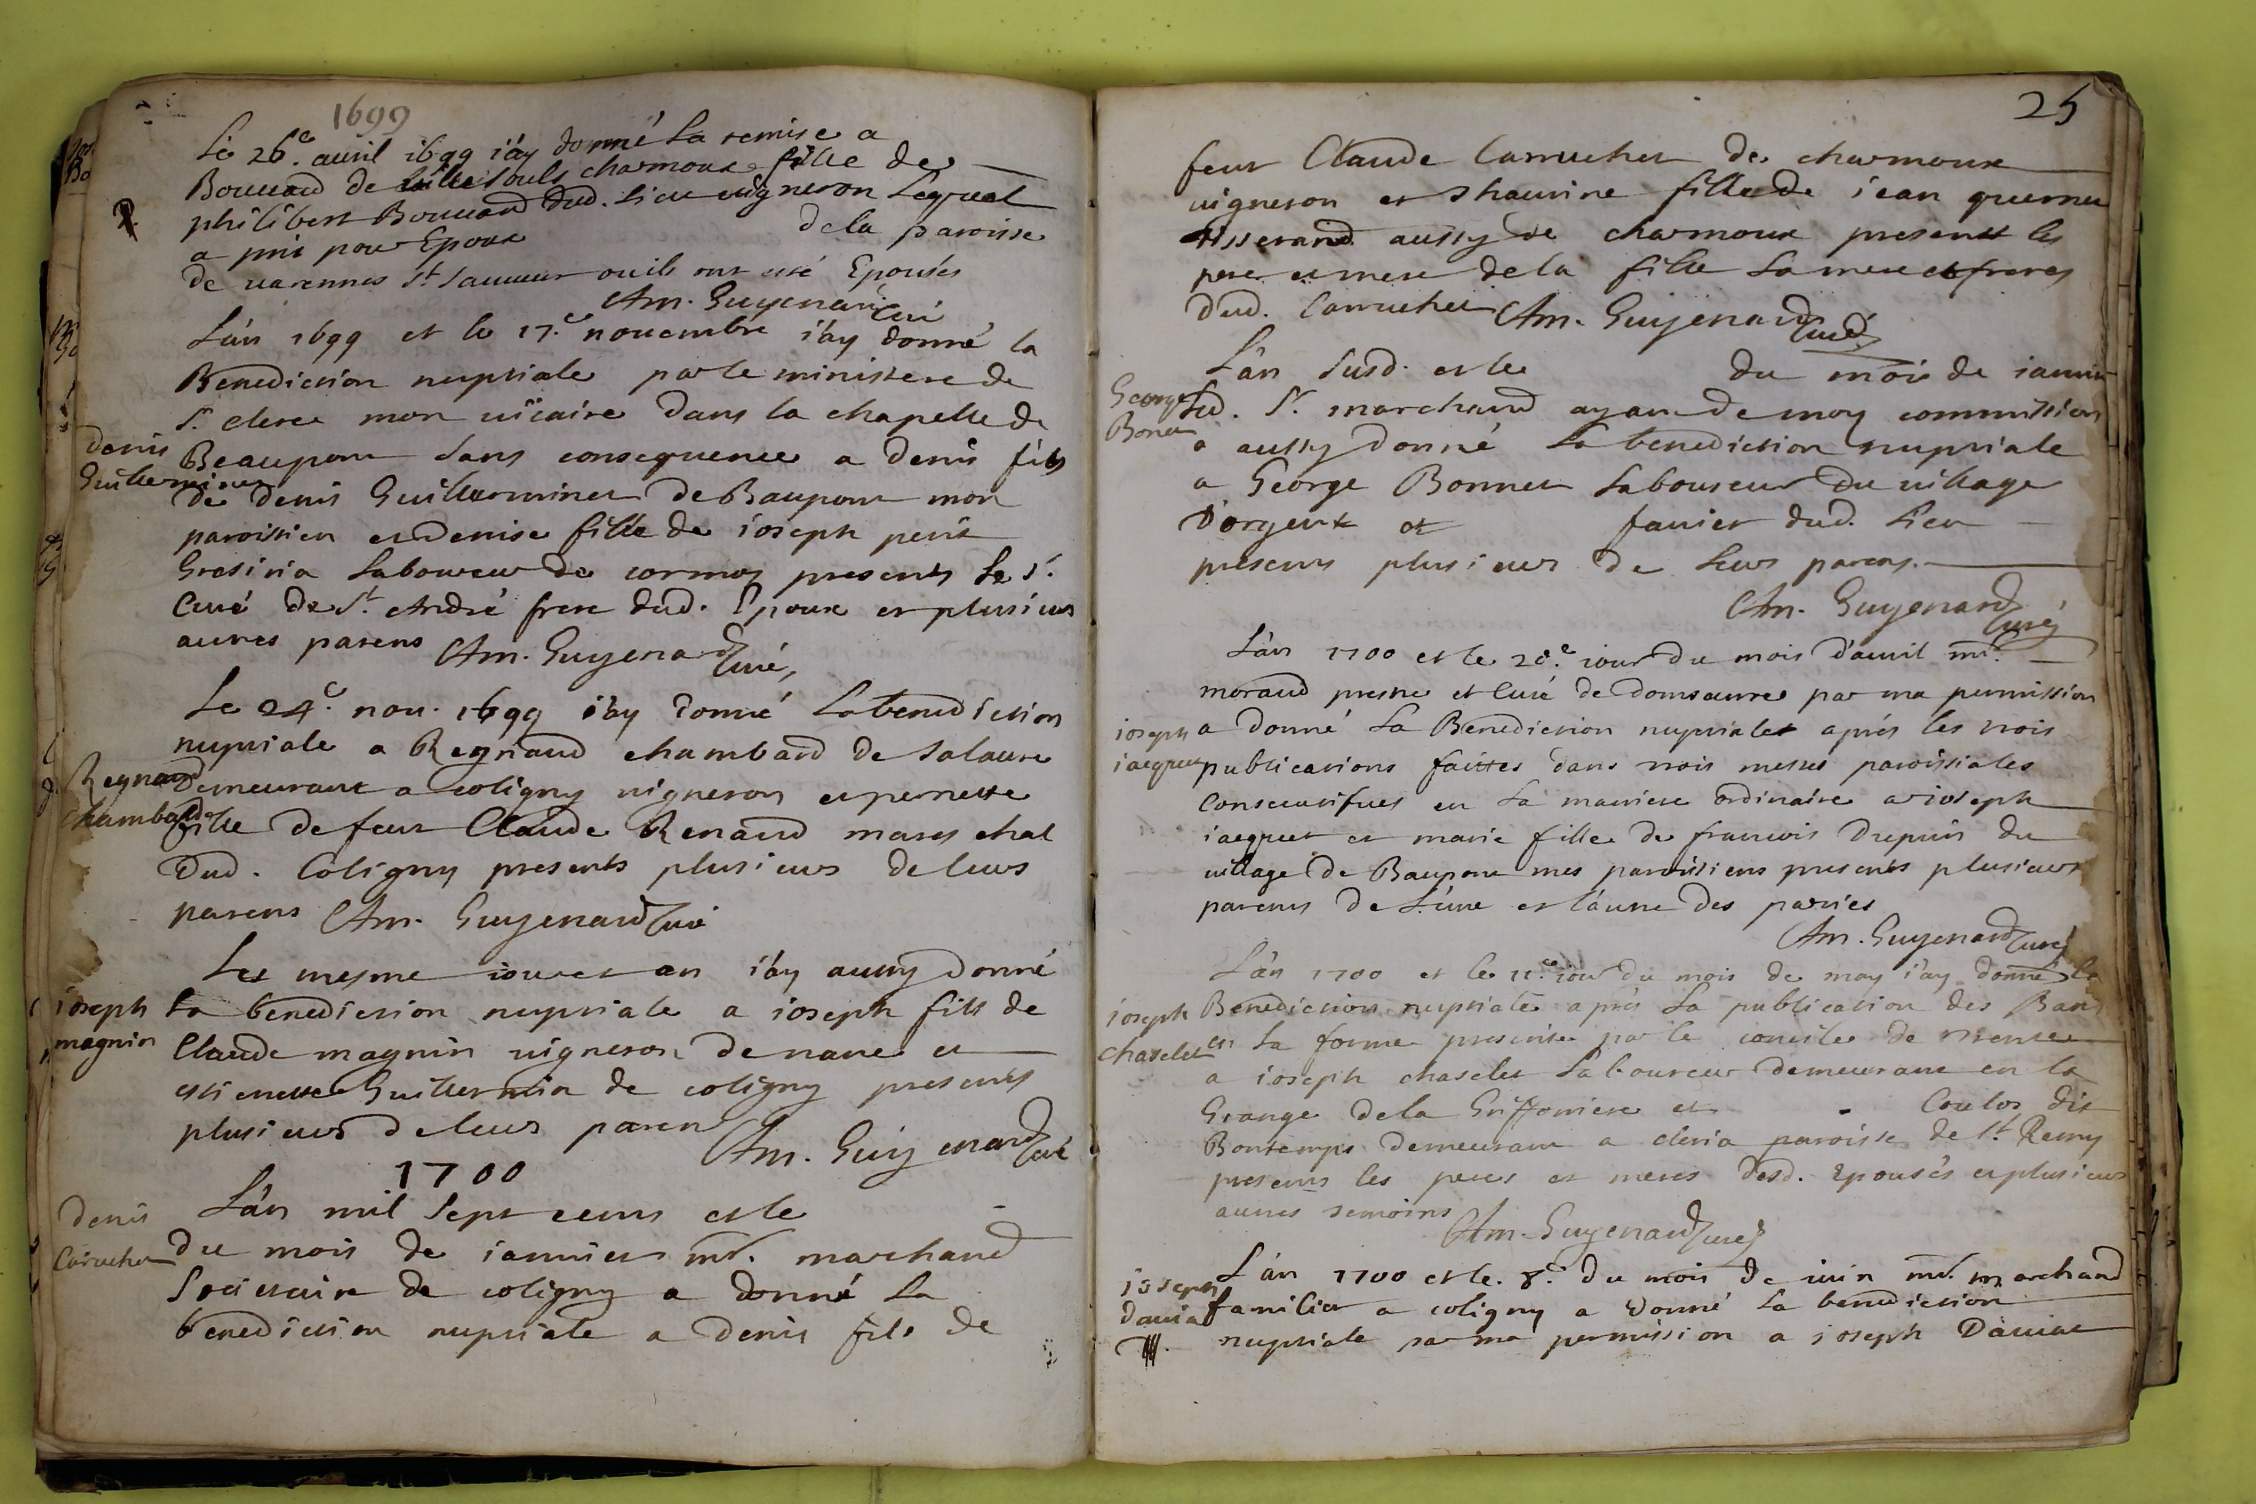 1699
Le 26.e auril 1699 i'ay donné La remise a
Bouuard de uillesouls charmoux fille de
philibert Bouuard dud. Lieu uigneron Lequel
a pris pour Epoux de la paroisse
de uarennes St. Sauueur ou ils ont esté Epousés
Am. Guyenard Curé
L'an 1699 et le 17.e nouembre i'ay donné la
Benediction nuptiale par le ministere de
Sr. clerc mon uicaire dans la chapelle de
denis
Guillerminet
Beaupont sans consequence a denis fils
de denis Guillerminet de Baupont mon
paroissien et denise fille de ioseph petit
Grosiria Laboureur de cormos presents Le Sr.
Curé de St. André frere dud. Epoux et plusieurs
autres parens Am. Guyenard Curé,
Le 24.e nou. 1699 i'ay donné La benediction
nuptiale a Reynaud chambard de Salaure
Reynaud
chambard
Demeurant a coligny uigneron et pernette
fille de feut Claude Renaud mareschal
Dud. Coligny presents plusieurs de leurs
parens Am. Guyenard Curé
Les mesme iour et an i'ay aussy donné
ioseph
magnin
La benediction nuptiale a ioseph fils de
Claude magnin uigneron de nanc et
estienette Guillermin de coligny presents
plusieurs de leurs paren Am. Guyenard Curé
1700
Denis
Caruchet
L'an mil Sept cents et le
du mois de ianuier mr. marchand
Societaire de coligny a donné La
benediction nuptiale a Denis fils de
25
feut Claude Carruchet de charmoux
uigneron et thaurine fille de iean querney
tisserand aussy de charmoux presents les
pere et mere de la fille La mere et freres
Dud. Carruchet Am. Guyenard Curé
L'an Susd. et le du mois de ianuier
George
Bonet
Led. Sr. marchand ayan de moy commission
a aussy donné La benediction nuptiale
a George Bonnet Laboureur du uillage
D'orgent et fauier dud. Lieu
presents plusieurs de Leurs parens.
Am. Guyenard Curé
L'an 1700 et le 20.e iour du mois d'auril mr.
moraud prestre et Curé de domsaurre par ma permission
ioseph
iacquet
a donné La Benediction nuptiale aprés les trois
publications faittes dans trois messes paroissiales
Consecutifues en La maniere ordinaire a ioseph
iacquet et marie fille de francois Dupuis du
uillage de Baupont mes paroissiens presents plusieurs
parents De L'une et l'autre Des parties
Am. Guyenard Curé
L'an 1700 et le 11.e iour du mois de may i'ay donné la
ioseph
chaselet
Benediction nuptiale aprés La publication des Bans
en La forme prescrite par le concile de trente
a ioseph chaselet Laboureur demeurant en la
Grange de la Griffonniere et Coulos dit
Bontemps demeurant a cleria paroisse de St. Remy
presents les peres et meres desd. Epousés et plusieurs
autres temoins Am. Guyenard Curé
ioseph
Dauiat
L'an 1700 et le 8.e du mois de iuin mr. marchand
familier a coligny a donné La benediction
nuptiale par ma permission a ioseph Dauiat